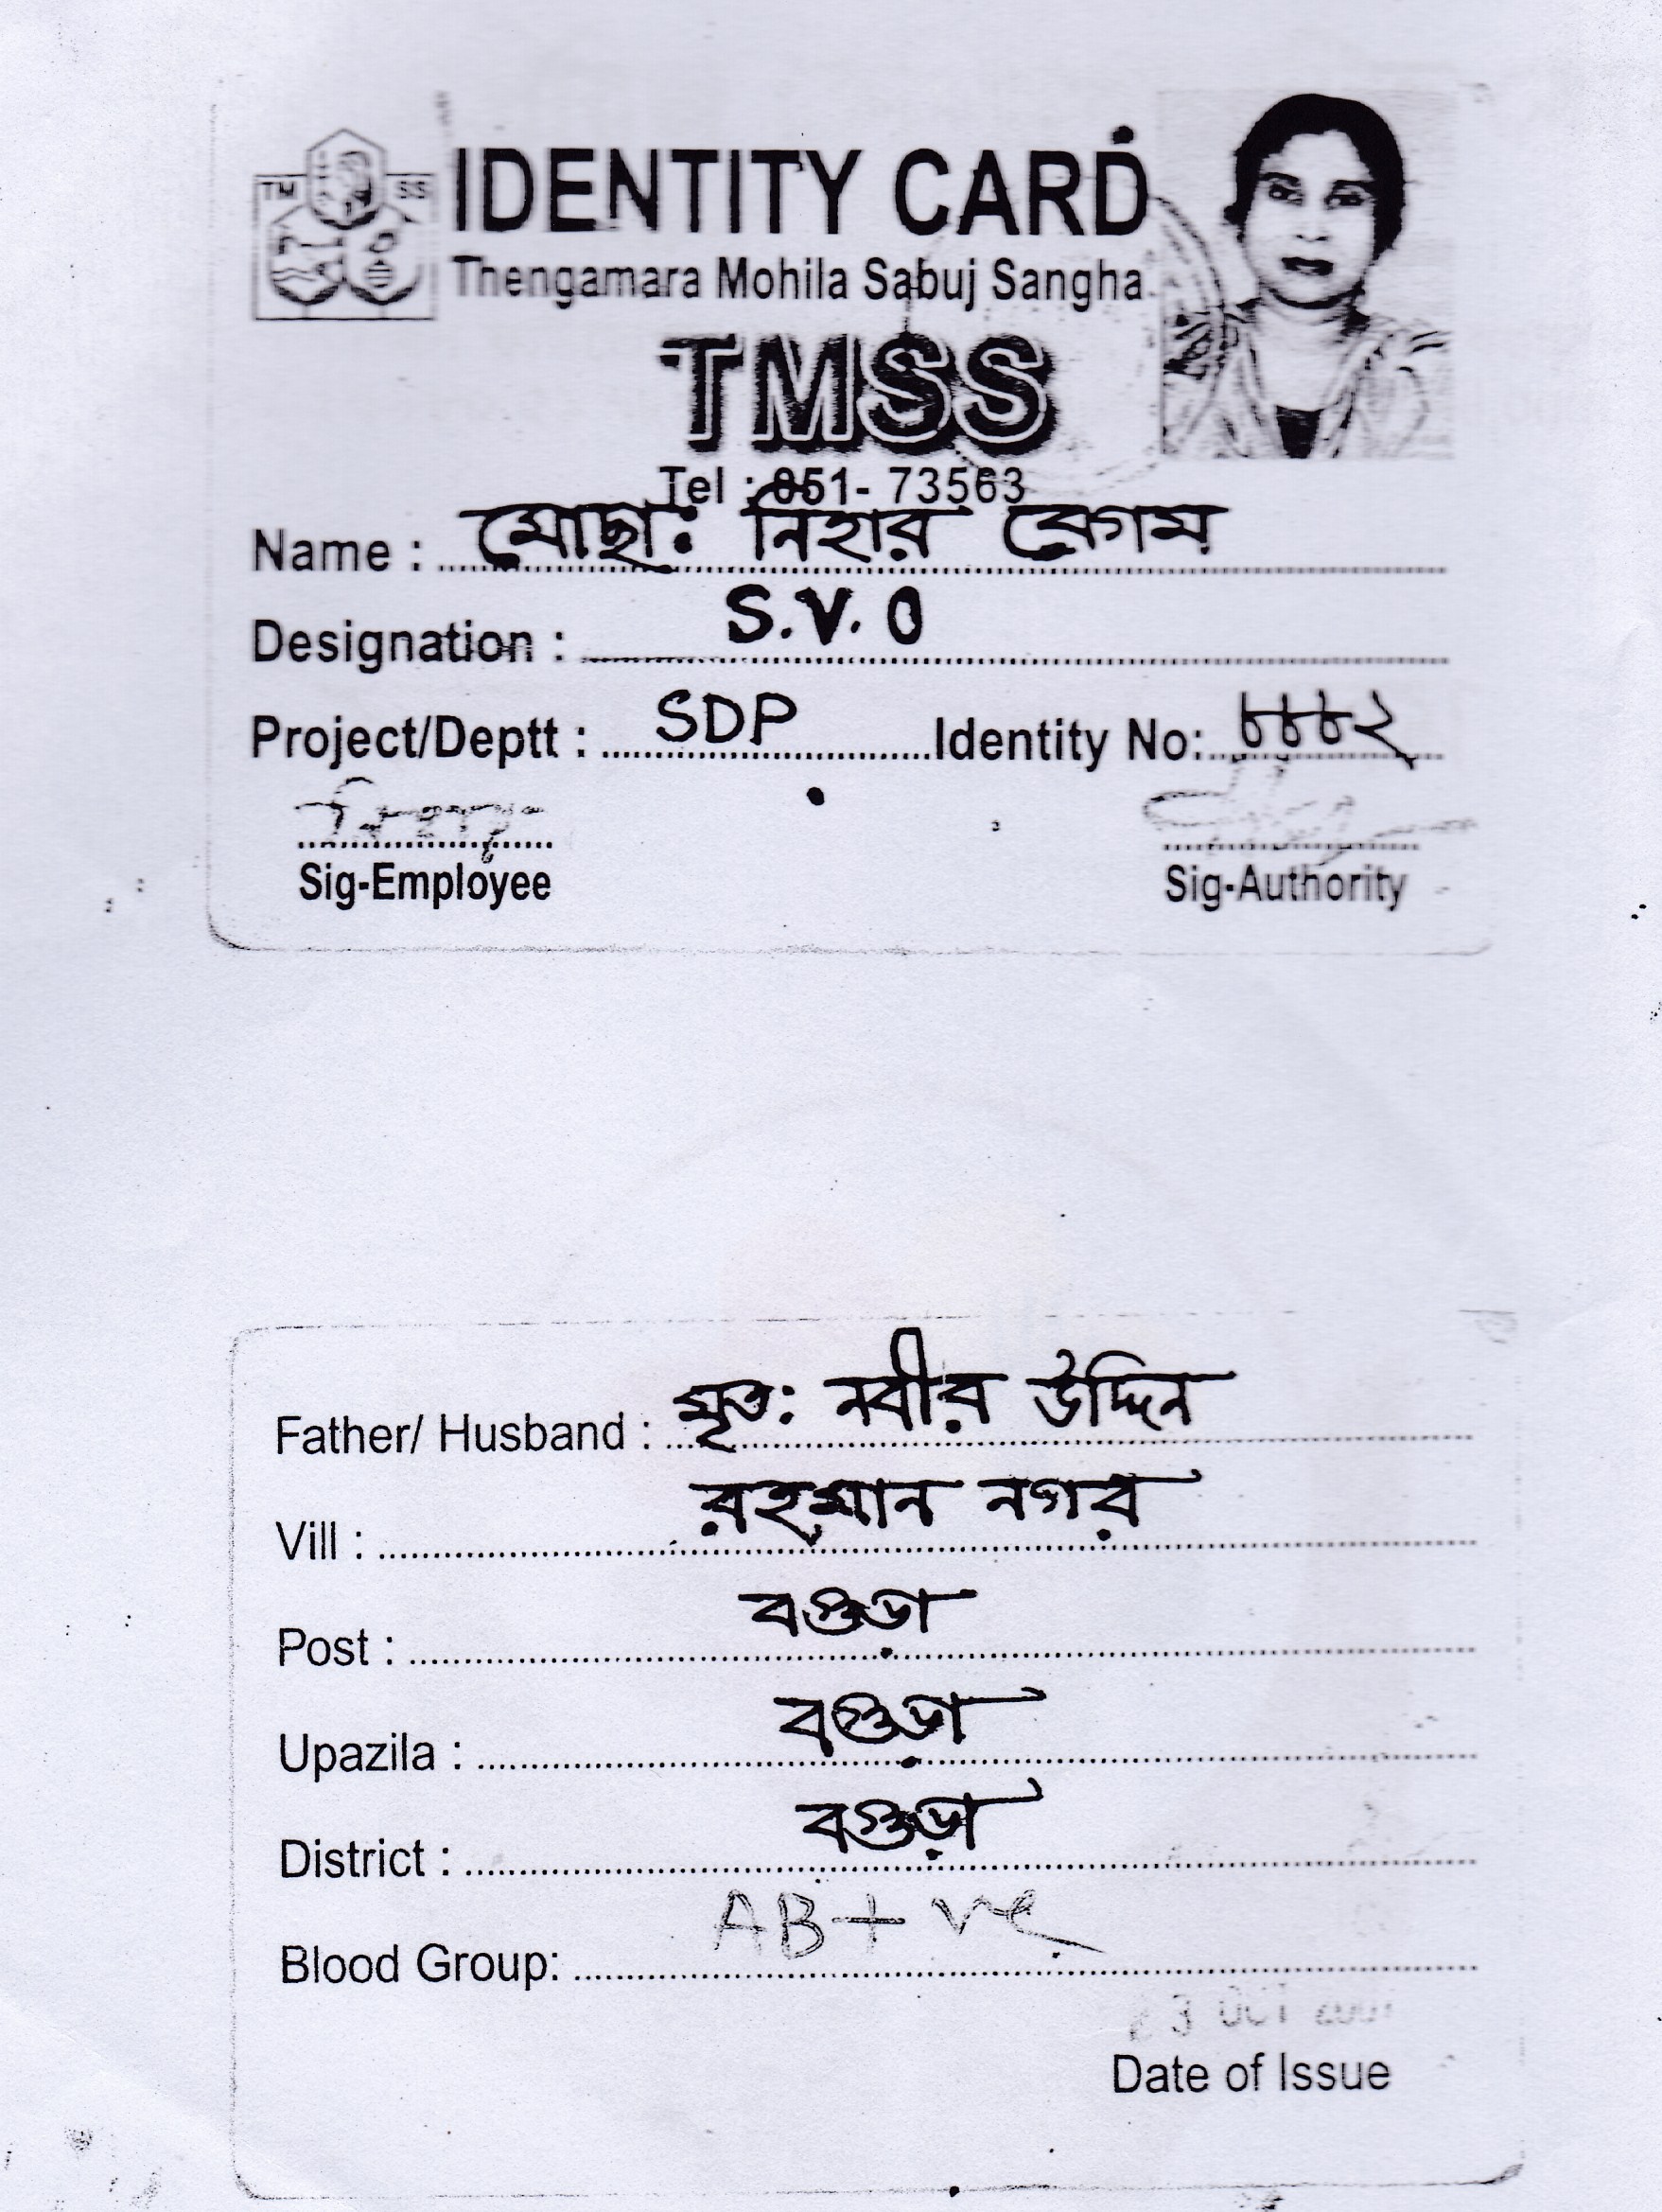 TM SS
IDENTITY CARD
Thengamara Mohila Sabuj Sangha
TMSS
Tel : 051- 73563
Name : মোছা: নিহার বেগম
Designation : S.V.O
Project/Deptt : SDP Identity No: ৮৮৮২
Sig-Employee Sig-Authority
Father/ Husband : মৃত: নবীর উদ্দিন
Vill : রহমান নগর
Post : বগুড়া
Upazila : বগুড়া
District : বগুড়া
Blood Group: AB+ve
23 OCT
Date of Issue